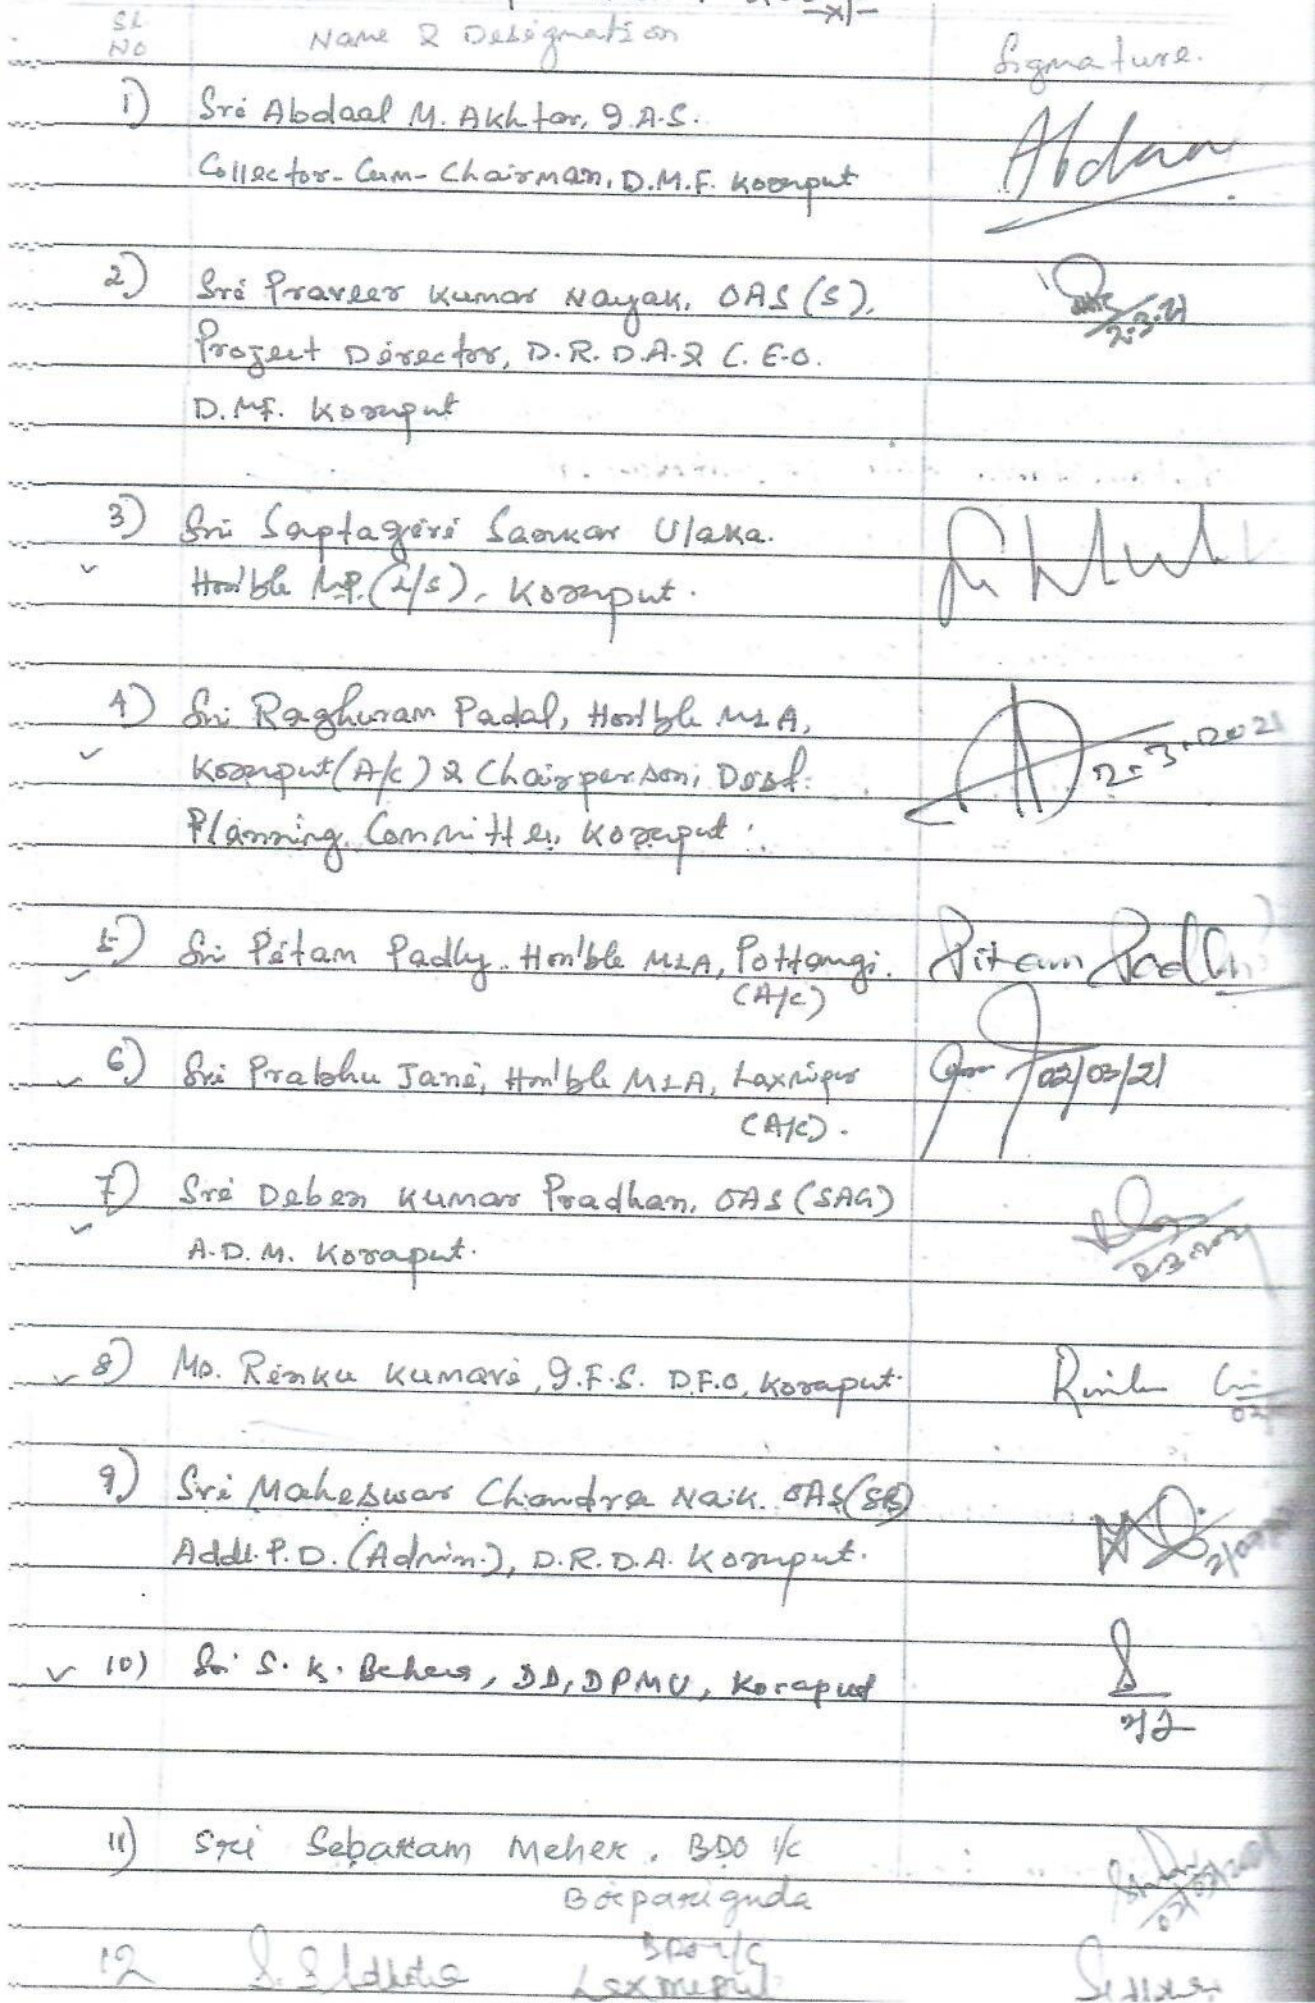 SL NO Name & Designation Signature.
1) Sri Abdaal M. Akhtar, I.A.S. Abdaal
Collector-Cum-Chairman, D.M.F. Koraput
2) Sri Praveer Kumar Nayak, OAS (S), 2.3.21
Project Director, D.R.D.A. & C.E.O.
D.M.F. Koraput
3) Sri Saptagiri Sankar Ulaka.
Hon'ble M.P. (L/S), Koraput.
4) Sri Raghuram Padal, Hon'ble MLA, 2-3-2021
Koraput (A/C) & Chairperson, Dist.
Planning Committee, Koraput.
5) Sri Pitam Padhy. Hon'ble MLA, Pottangi. Pitam Padhi
(A/C)
6) Sri Prabhu Jani, Hon'ble MLA, Laxmipur 02/03/21
(A/C).
7) Sri Deben Kumar Pradhan, OAS (SAG) 2.3.2021
A.D.M. Koraput.
8) Ms. Rinku Kumari, I.F.S. D.F.O, Koraput.
9) Sri Maheswar Chandra Naik. OAS (SB)
Addl. P.D. (Admin.), D.R.D.A. Koraput.
10) Sri S. K. Behera, DD, DPMU, Koraput
11) Sri Sebaram Meher, BDO i/c
Boipariguda
12 BDO i/c
Laxmipur